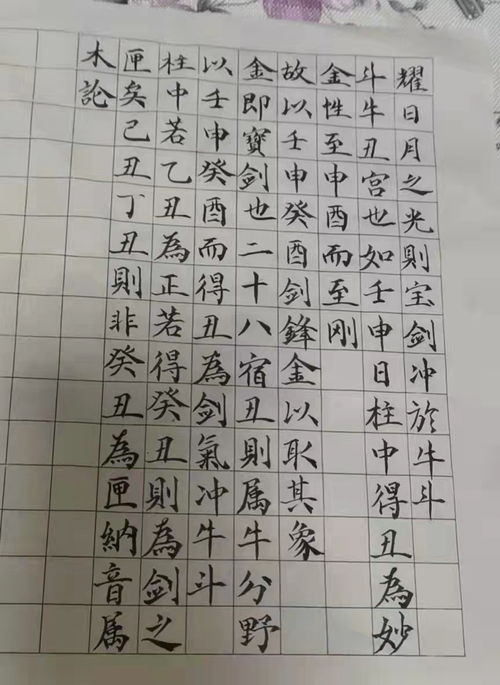 耀日月之光則宝劍冲於牛斗
斗牛丑宮也如壬申日柱中得丑為妙
金性至申酉而至刚
故以壬申癸酉劍鋒金以取其象
金即寶劍也二十八宿丑則属牛分野
以壬申癸酉而得丑為劍氣冲牛斗
柱中若乙丑為正若得癸丑則為劍之
匣矣己丑丁丑則非癸丑為匣納音属
木論